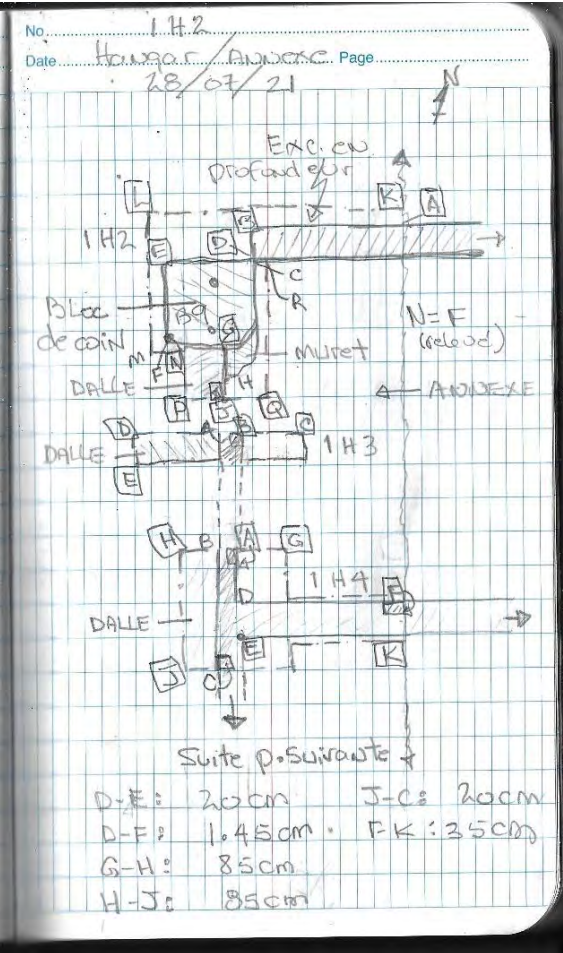 No. 1H2
Date Hangar/Annexe Page
28/07/21
N
Exc. en
profondeur
L
K
A
B
1H2
E
D
C
R
Bloc
de coin
B9
G
N=F
(relevé)
M
F
N
muret
DALLE
H
← ANNEXE
P
J
Q
D
A
B
C
DALLE
1H3
E
H
B
A
G
D
1H4
F
DALLE
E
K
J
C
Suite p. suivante
D-E: 20cm J-C: 20cm
D-F: 1.45cm. FK: 35cm
G-H: 85cm
H-J: 85cm